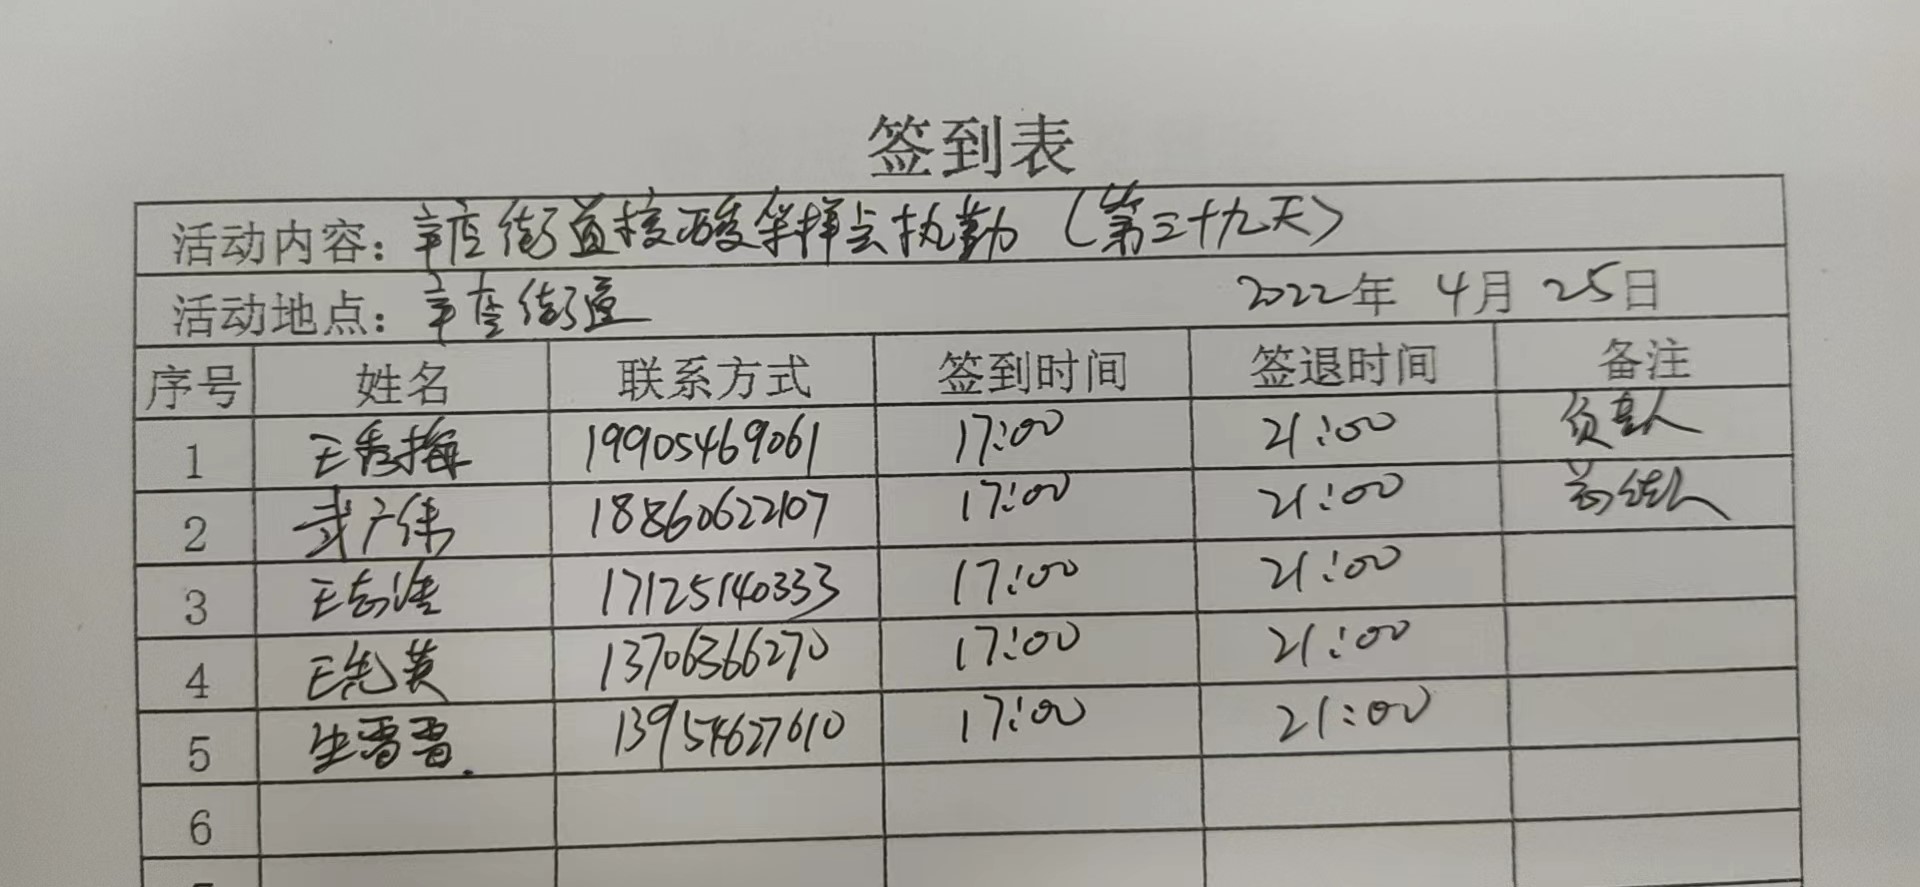 签到表
活动内容：辛店街道核酸采样点执勤（第三十九天）
活动地点：辛店街道 2022年 4月 25日
序号 姓名 联系方式 签到时间 签退时间 备注
1 王秀梅 19905469061 17:00 21:00 负责人
2 武广伟 18860622107 17:00 21:00
3 17125140333 17:00 21:00
4 王先英 13706366270 17:00 21:00
5 13954627610 17:00 21:00
6